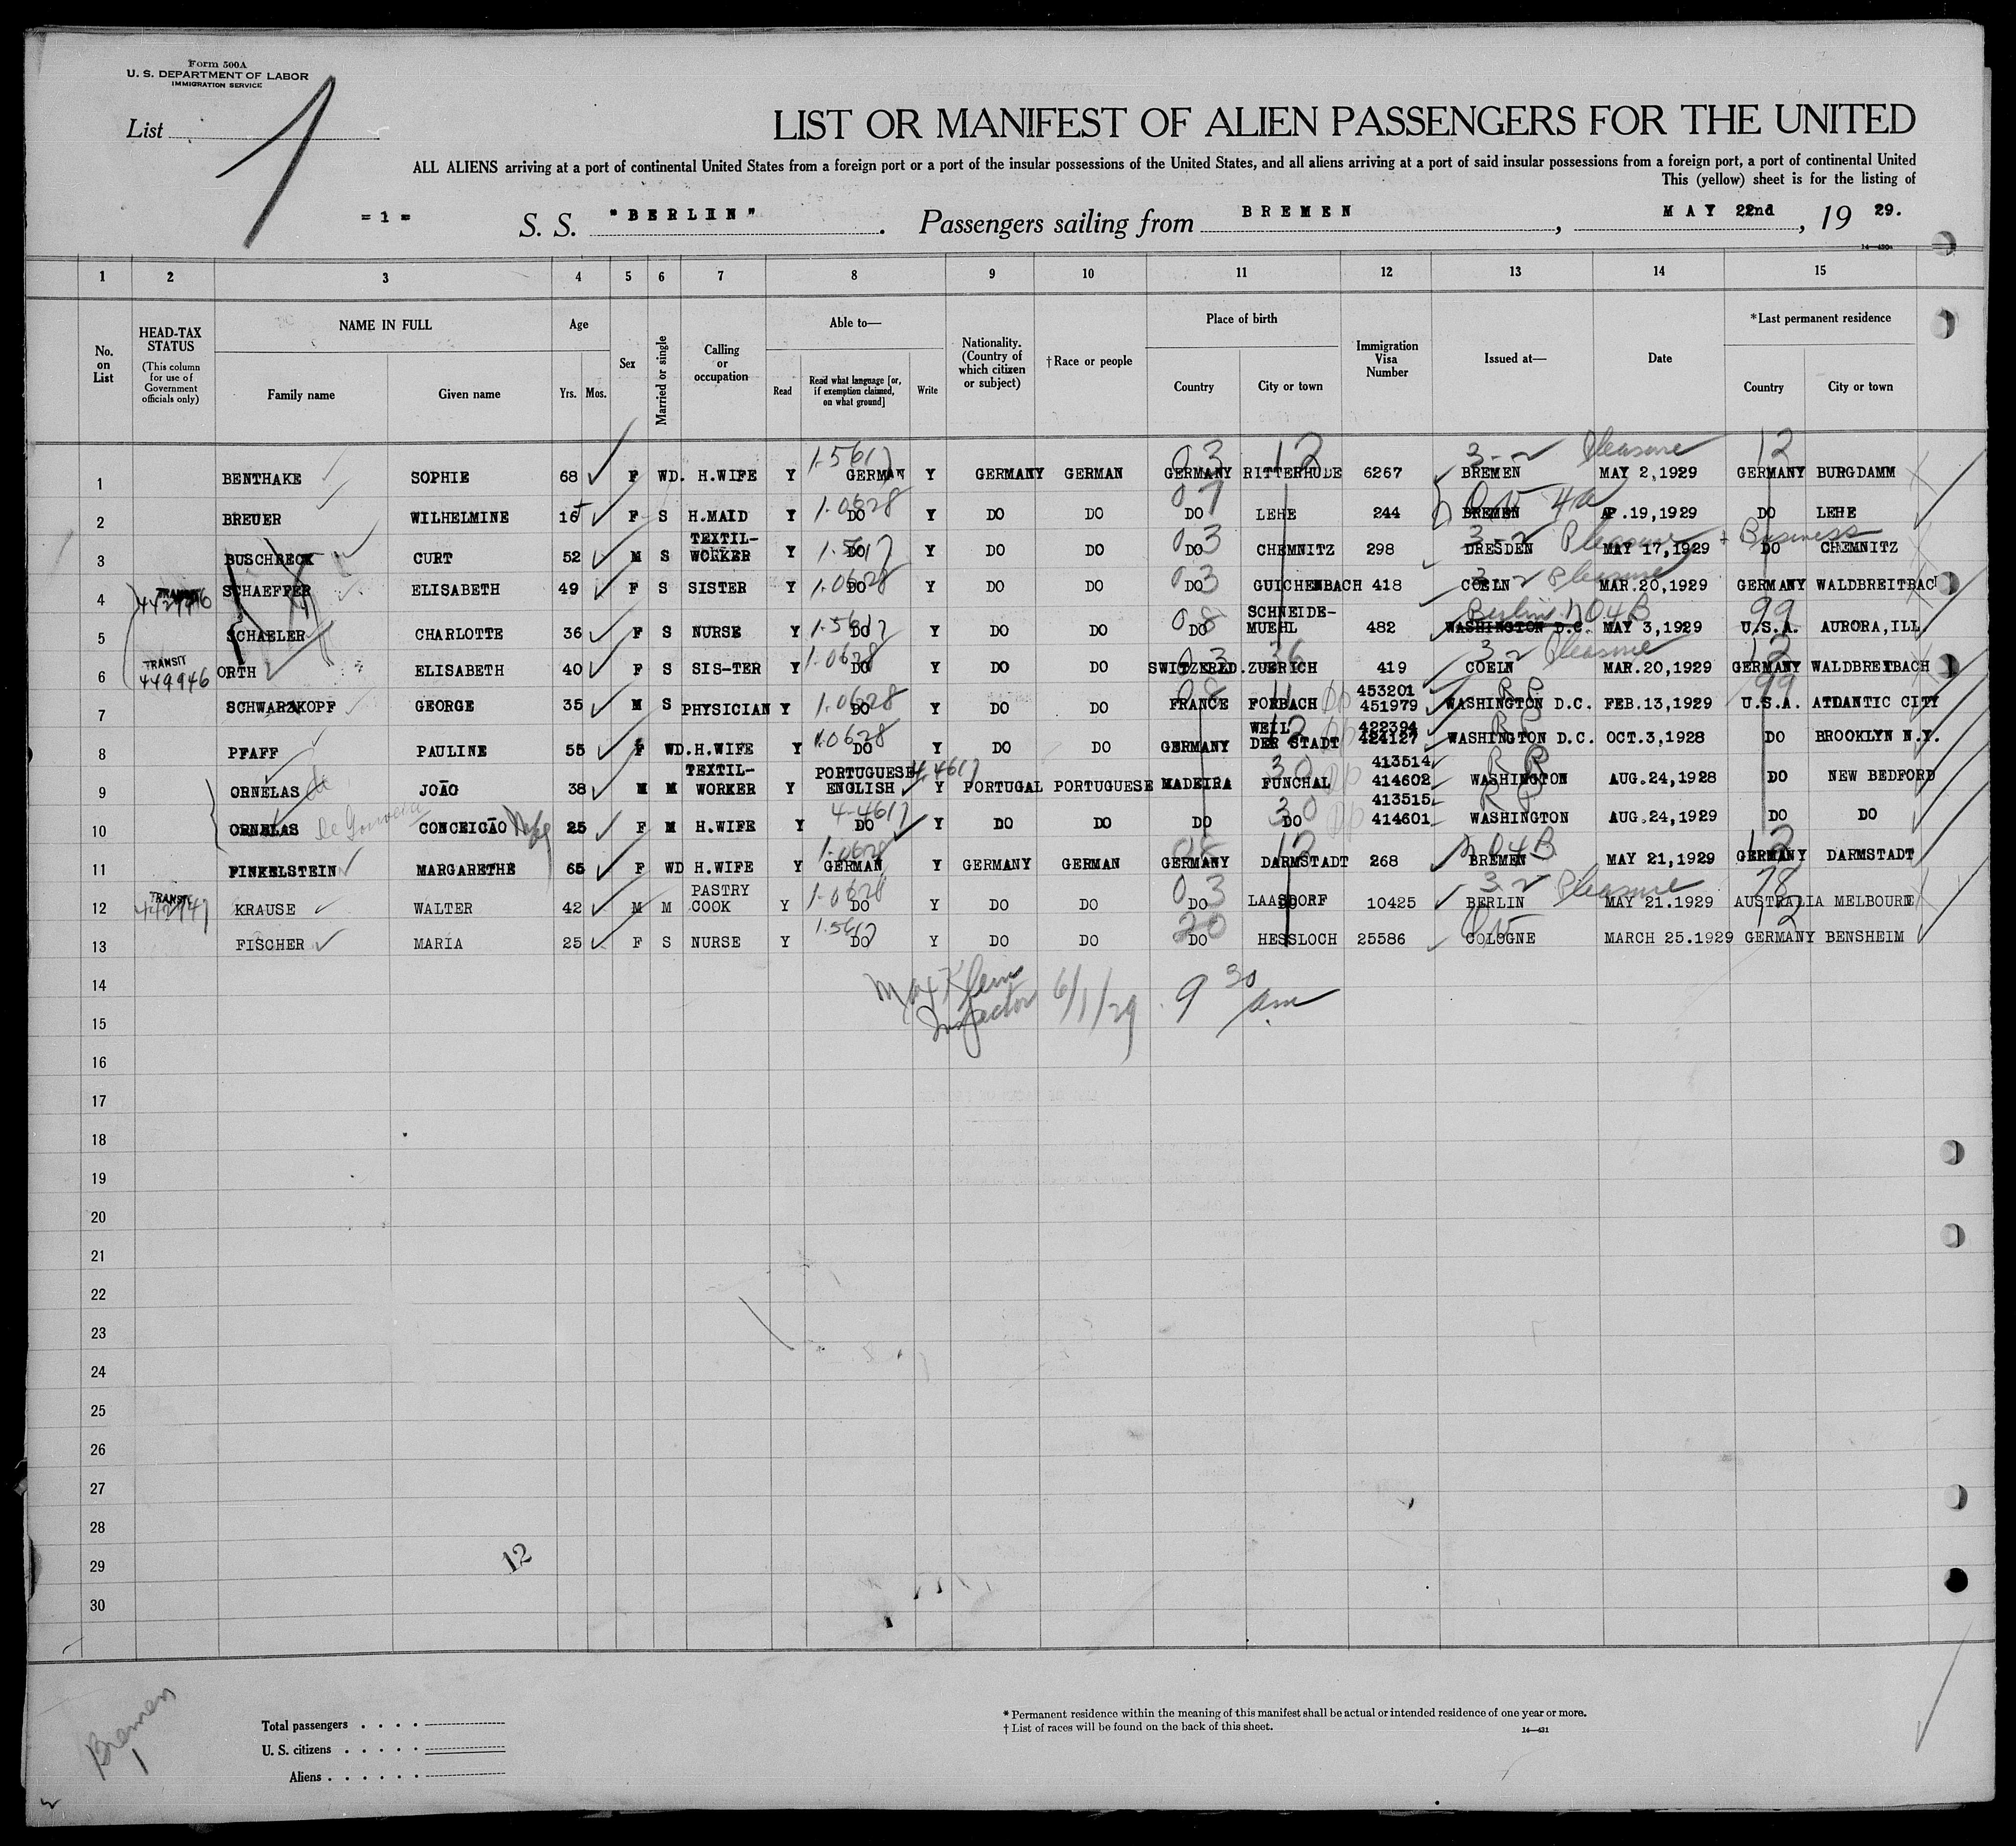 Form 500A
U. S. DEPARTMENT OF LABOR
IMMIGRATION SERVICE
List 1
LIST OR MANIFEST OF ALIEN PASSENGERS FOR THE UNITED
ALL ALIENS arriving at a port of continental United States from a foreign port or a port of the insular possessions of the United States, and all aliens arriving at a port of said insular possessions from a foreign port, a port of continental United
This (yellow) sheet is for the listing of
= 1 = S. S. "BERLIN". Passengers sailing from BREMEN, MAY 22nd, 19 29.
14—430a
1 2 3 4 5 6 7 8 9 10 11 12 13 14 15
No. on List
HEAD-TAX STATUS (This column for use of Government officials only)
NAME IN FULL Family name Given name
Age Yrs. Mos.
Sex
Married or single
Calling or occupation
Able to— Read Read what language [or, if exemption claimed, on what ground] Write
Nationality. (Country of which citizen or subject)
† Race or people
Place of birth Country City or town
Immigration Visa Number
Issued at—
Date
*Last permanent residence Country City or town
1-5617 03 12 3-2 Pleasure 12
1 BENTHAKE SOPHIE 68 F WD. H.WIFE Y GERMAN Y GERMANY GERMAN GERMANY RITTERHUDE 6267 BREMEN MAY 2,1929 GERMANY BURGDAMM
1-0628 07 4a
2 BREUER WILHELMINE 16 F S H.MAID Y DO Y DO DO DO LEHE 244 BREMEN AP.19,1929 DO LEHE
1-5617 03 3-2 Pleasure + Business
3 BUSCHBECK CURT 52 M S TEXTIL-WORKER Y DO Y DO DO DO CHEMNITZ 298 DRESDEN MAY 17,1929 DO CHEMNITZ
TRANSIT 1-0628 03 3-2 Pleasure
4 SCHAEFFER ELISABETH 49 F S SISTER Y DO Y DO DO DO GUICHENBACH 418 COELN MAR.20,1929 GERMANY WALDBREITBACH
1-5617 08 Berlin N04B 99
5 SCHAELER CHARLOTTE 36 F S NURSE Y DO Y DO DO DO SCHNEIDE-MUEHL 482 WASHINGTON D.C. MAY 3,1929 U.S.A. AURORA,ILL
TRANSIT 449946 1-0628 03 36 3-2 Pleasure 12
6 ORTH ELISABETH 40 F S SIS-TER Y DO Y DO DO SWITZERLD. ZUERICH 419 COELN MAR.20,1929 GERMANY WALDBREITBACH
1-0628 08 11 DP RP 99
7 SCHWARZKOPF GEORGE 35 M S PHYSICIAN Y DO Y DO DO FRANCE FORBACH 453201 451979 WASHINGTON D.C. FEB.13,1929 U.S.A. ATLANTIC CITY
1-0628 12 DP RP
8 PFAFF PAULINE 55 F WD. H.WIFE Y DO Y DO DO GERMANY WEIL DER STADT 422394 424127 WASHINGTON D.C. OCT.3,1928 DO BROOKLYN N.Y.
4-4617 30 DP RP
9 ORNELAS de JOÃO 38 M M TEXTIL-WORKER Y PORTUGUESE ENGLISH Y PORTUGAL PORTUGUESE MADEIRA FUNCHAL 413514 414602 WASHINGTON AUG.24,1928 DO NEW BEDFORD
4-4617 30 DP RP
10 ORNELAS de Gouveia CONCEICÃO 25 F M H.WIFE Y DO Y DO DO DO DO 413515 414601 WASHINGTON AUG.24,1929 DO DO
1-0628 08 12 N04B 12
11 FINKELSTEIN MARGARETHE 65 F WD H.WIFE Y GERMAN Y GERMANY GERMAN GERMANY DARMSTADT 268 BREMEN MAY 21,1929 GERMANY DARMSTADT
TRANSIT 1-0628 03 3-2 Pleasure 78
12 KRAUSE WALTER 42 M M PASTRY COOK Y DO Y DO DO DO LAASDORF 10425 BERLIN MAY 21.1929 AUSTRALIA MELBOURNE
1-5617 20 12
13 FISCHER MARIA 25 F S NURSE Y DO Y DO DO DO HESSLOCH 25586 COLOGNE MARCH 25.1929 GERMANY BENSHEIM
14 Max Klein 6/1/29 9 30 am
15 Inspector
16
17
18
19
20
21
22
23
24
25
26
27
28
29
12
30
Bremen
1
Total passengers
U. S. citizens
Aliens
* Permanent residence within the meaning of this manifest shall be actual or intended residence of one year or more.
† List of races will be found on the back of this sheet.
14—431